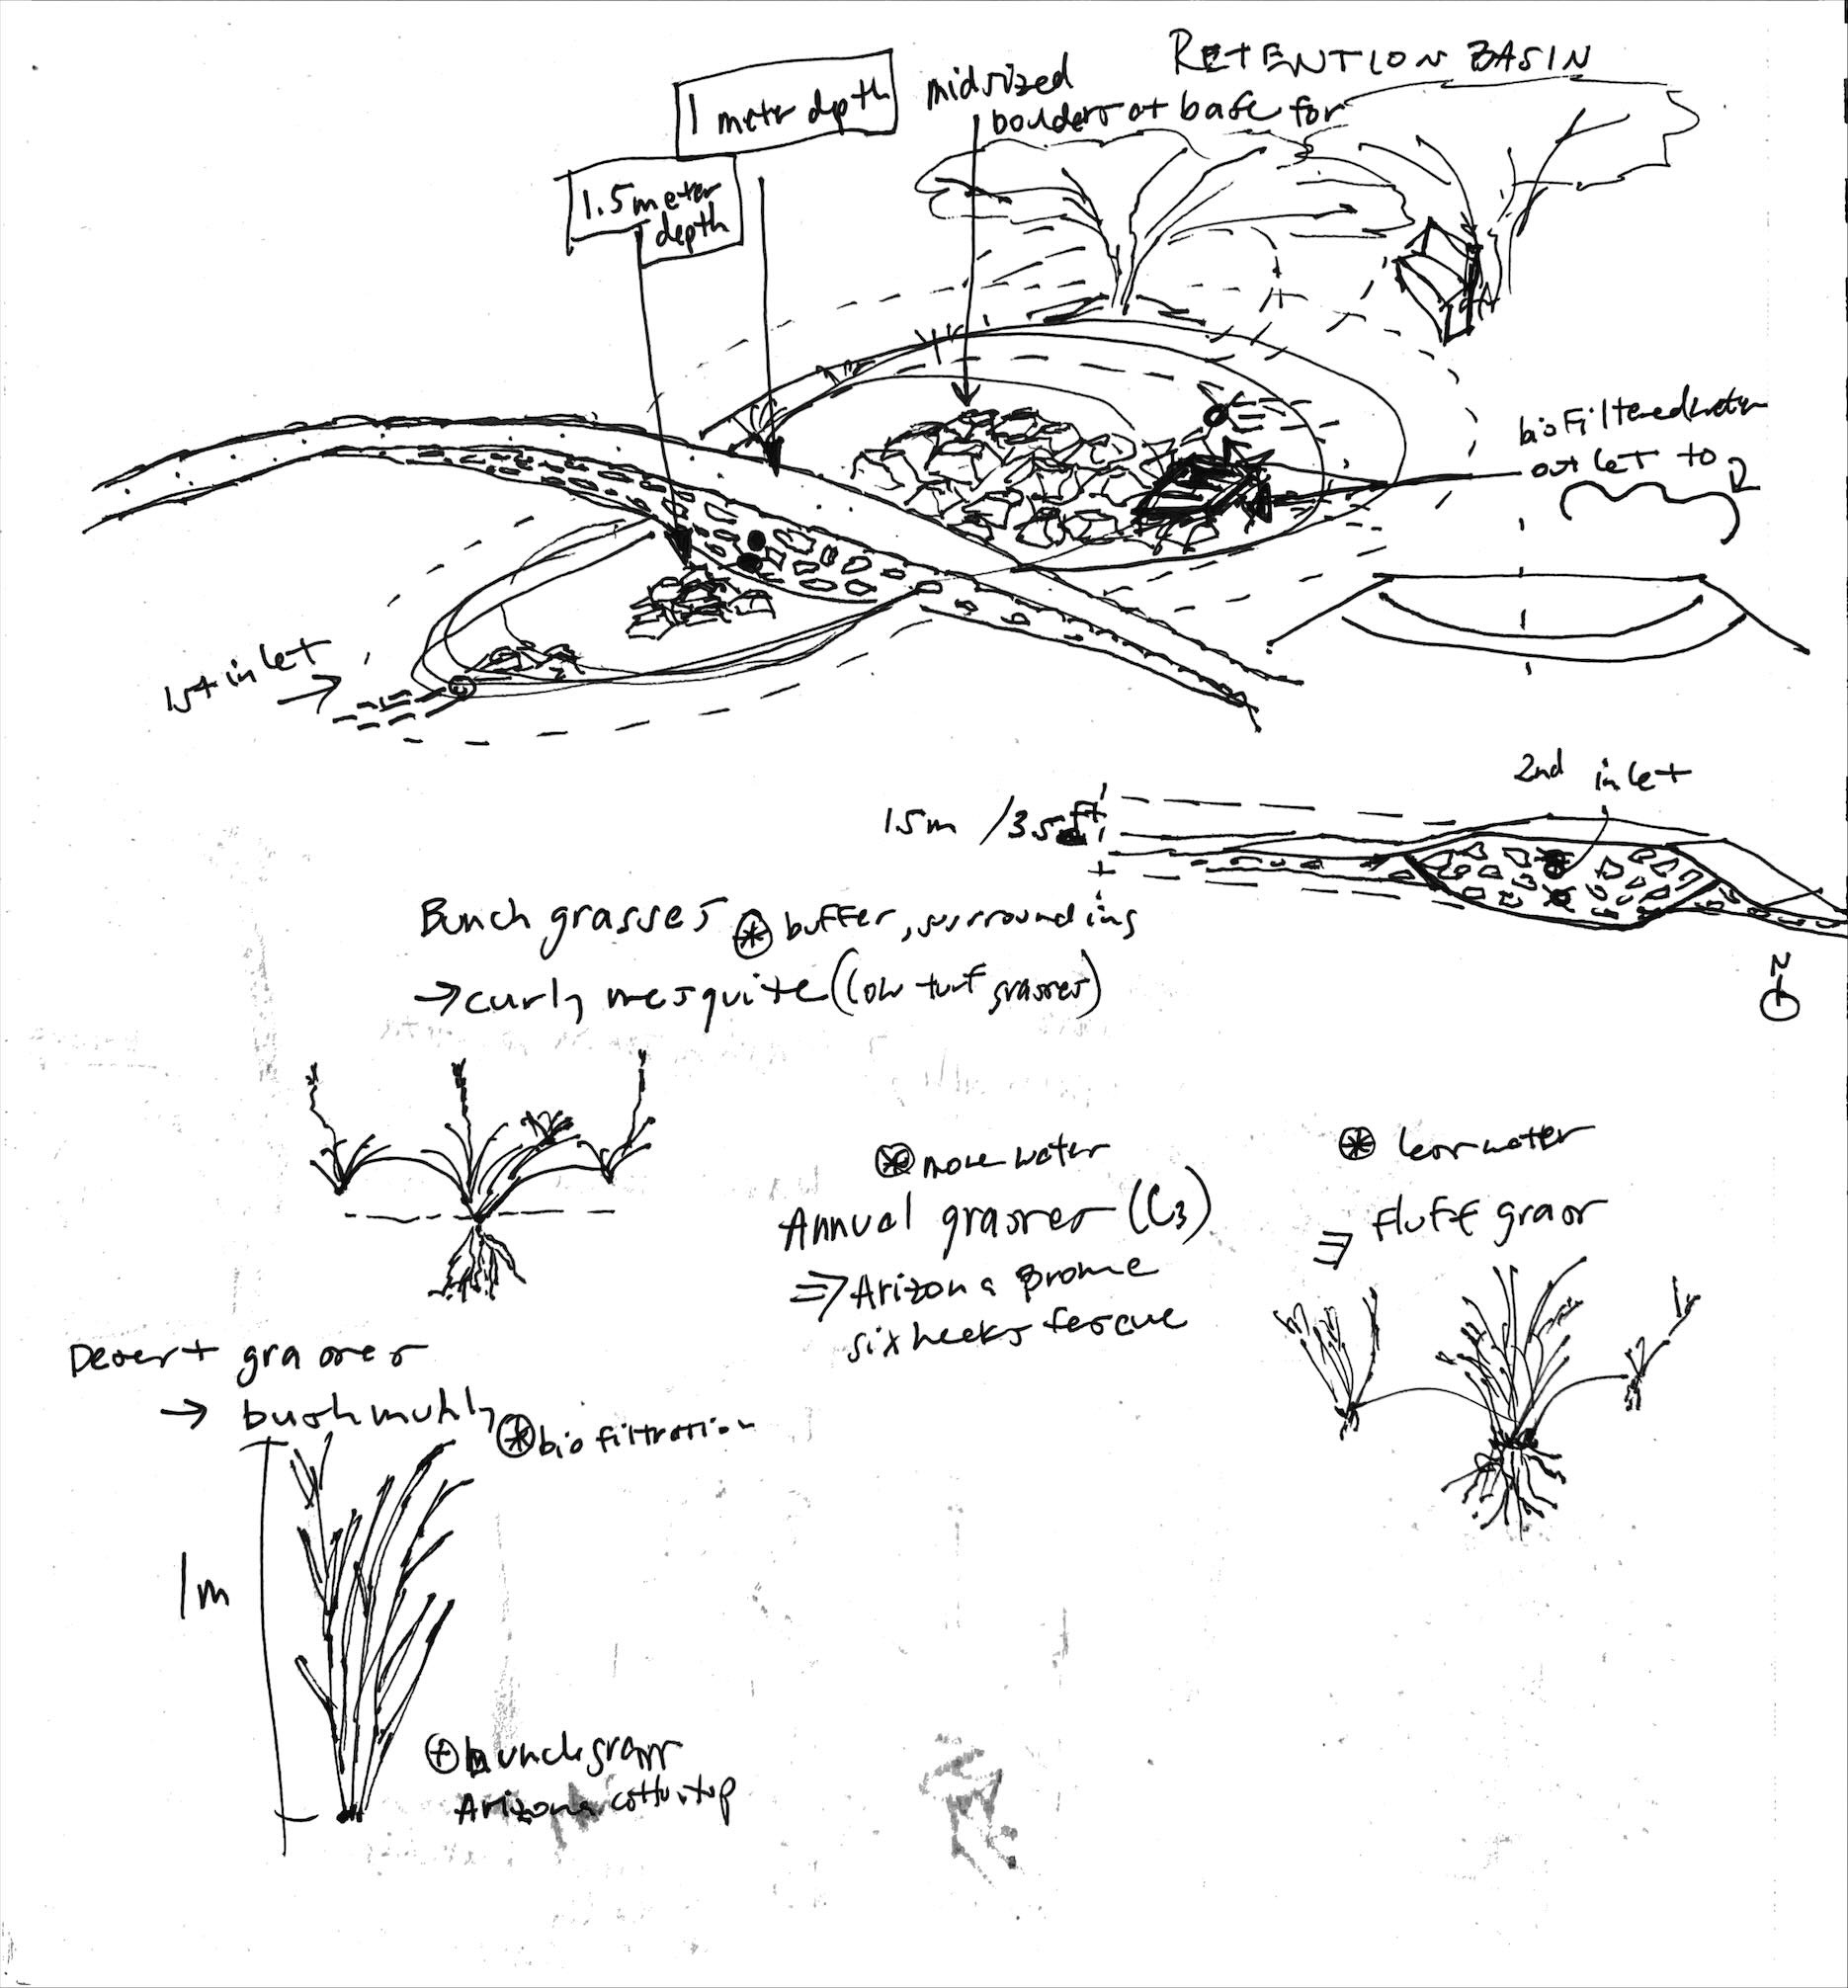 RETENTION BASIN
1 meter depth
midsized
boulders at base for
1.5 meter
depth
biofiltered water
outlet to
1st inlet
2nd inlet
1.5m / 3.5 ft
Bunch grasses buffer, surrounding
→ curly mesquite (low turf grasses)
N
more water
Annual grasses (C3)
⇒ Arizona Brome
six weeks fescue
less water
⇒ fluff grass
Desert grasses
→ bush muhly
bio filtration
1m
bunch grass
Arizona cottontop